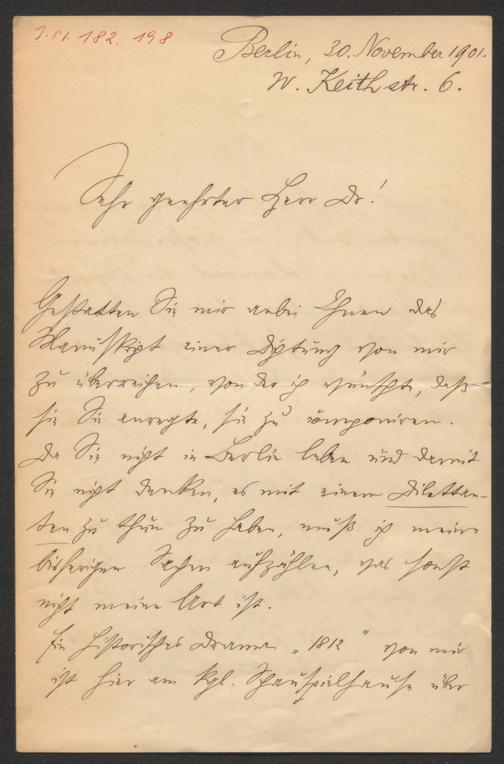 I.N. 182.198
Berlin, 30. November 1901.
W. Keithstr. 6.
Sehr geehrter Herr Dr!
Gestatten Sie mir anbei Ihnen das
Manuskript einer Dichtung von mir
zu überreichen, von der ich wünschte, daß
sie Sie anregte, sie zu componiren.
Da Sie nicht in Berlin leben und damit
Sie nicht denken, es mit einem Dilettan-
ten zu thun zu haben, muß ich meine
bisherigen Sachen aufzählen, was sonst
nicht meine Art ist.
Ein historisches Drama „1812" von mir
ist hier am Kgl. Schauspielhause über